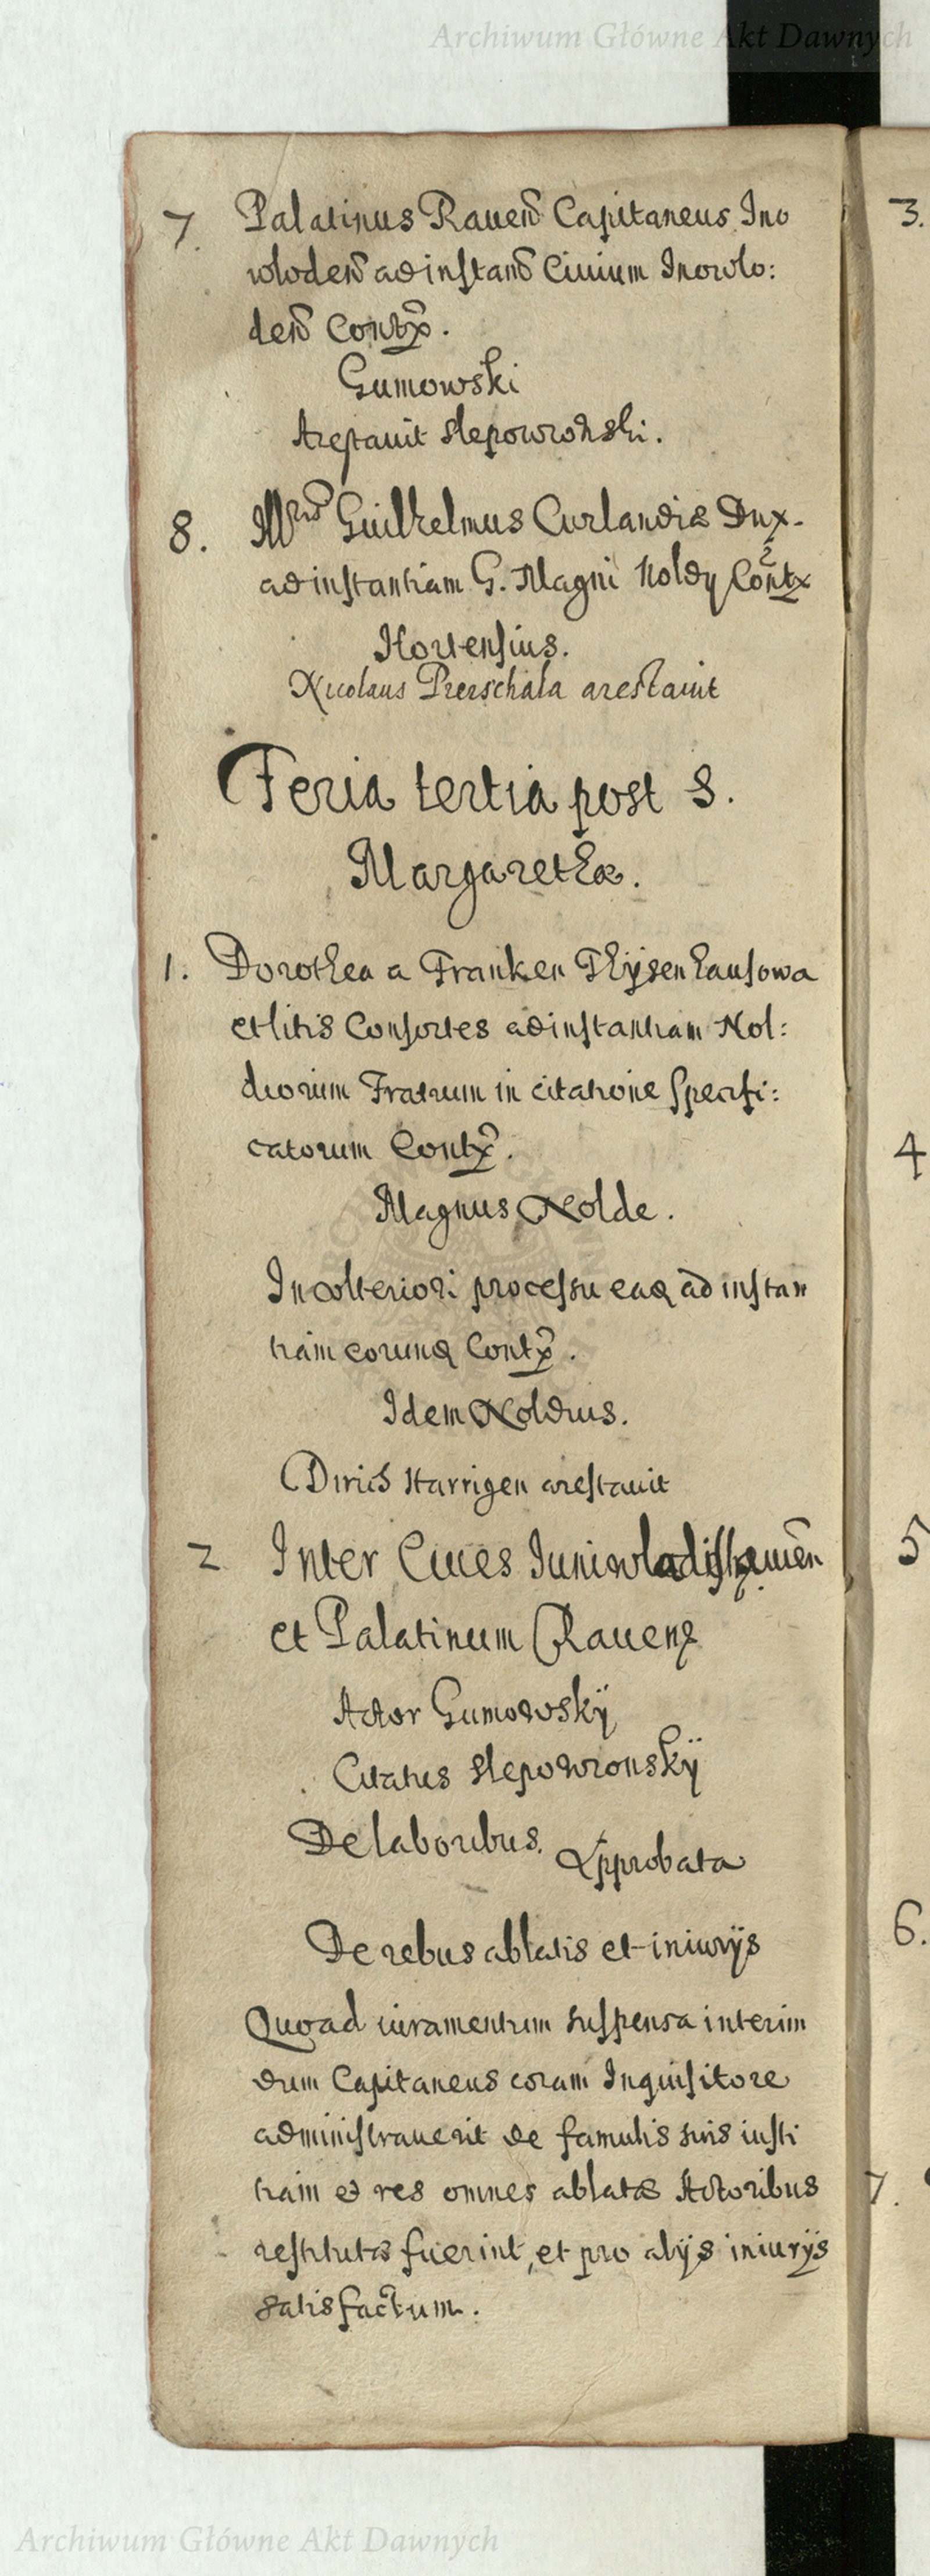 Archiwum Główne Akt Dawnych
7. Palatinus Rauen Capitaneus Ino
wloden ad instan Ciuium Inowlo:
den Contx.
Gumowski
Arestauit Slepowronski.
8. Guilhelmus Curlandiæ Dux.
ad instantiam G. Magni Noldy Contx
Hortensius.
Nicolaus Prerschala arestauit
Feria tertia post S.
Margarethæ.
1. Dorothea a Franken Thÿsenhausowa
et litis Consortes ad instantiam Nol:
diorum Fratrum in citatione specifi:
catorum Contx.
Magnus Nolde.
In ulteriori processu eaq ad instan
tiam eorunq Contx.
Idem Noldius.
Dirich Harrigen arestauit
2 Inter Ciues
et Palatinum Rauens
Actor Gumowskÿ
Citatus Slepowronskÿ
De laboribus. Approbata
De rebus ablatis et iniurÿs
Quoad iuramentum suspensa interim
dum Capitaneus coram Inquisitore
administrauerit de famulis suis iusti
tiam et res omnes ablatæ Actoribus
restitutæ fuerint, et pro alÿs iniurÿs
satisfactum.
3.
4
5
6.
7.
Archiwum Główne Akt Dawnych